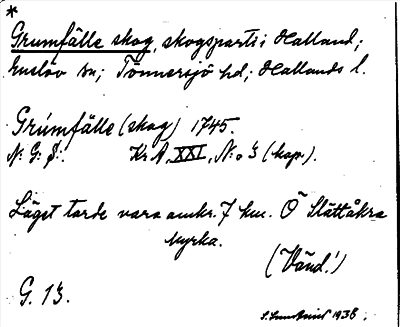 *
Grumfälle skog, skogsparti i Halland;
Enslöv sn; Tönnersjö hd; Hallands l.
Grúmfälle (skog) 1745.
N: G: S:. Kr A, XXI, N:o 3 (kop.).
Läget torde vara omkr. 7 km. Ö Slättåkra
kyrka.
(Vänd!)
G. 13.
1938.